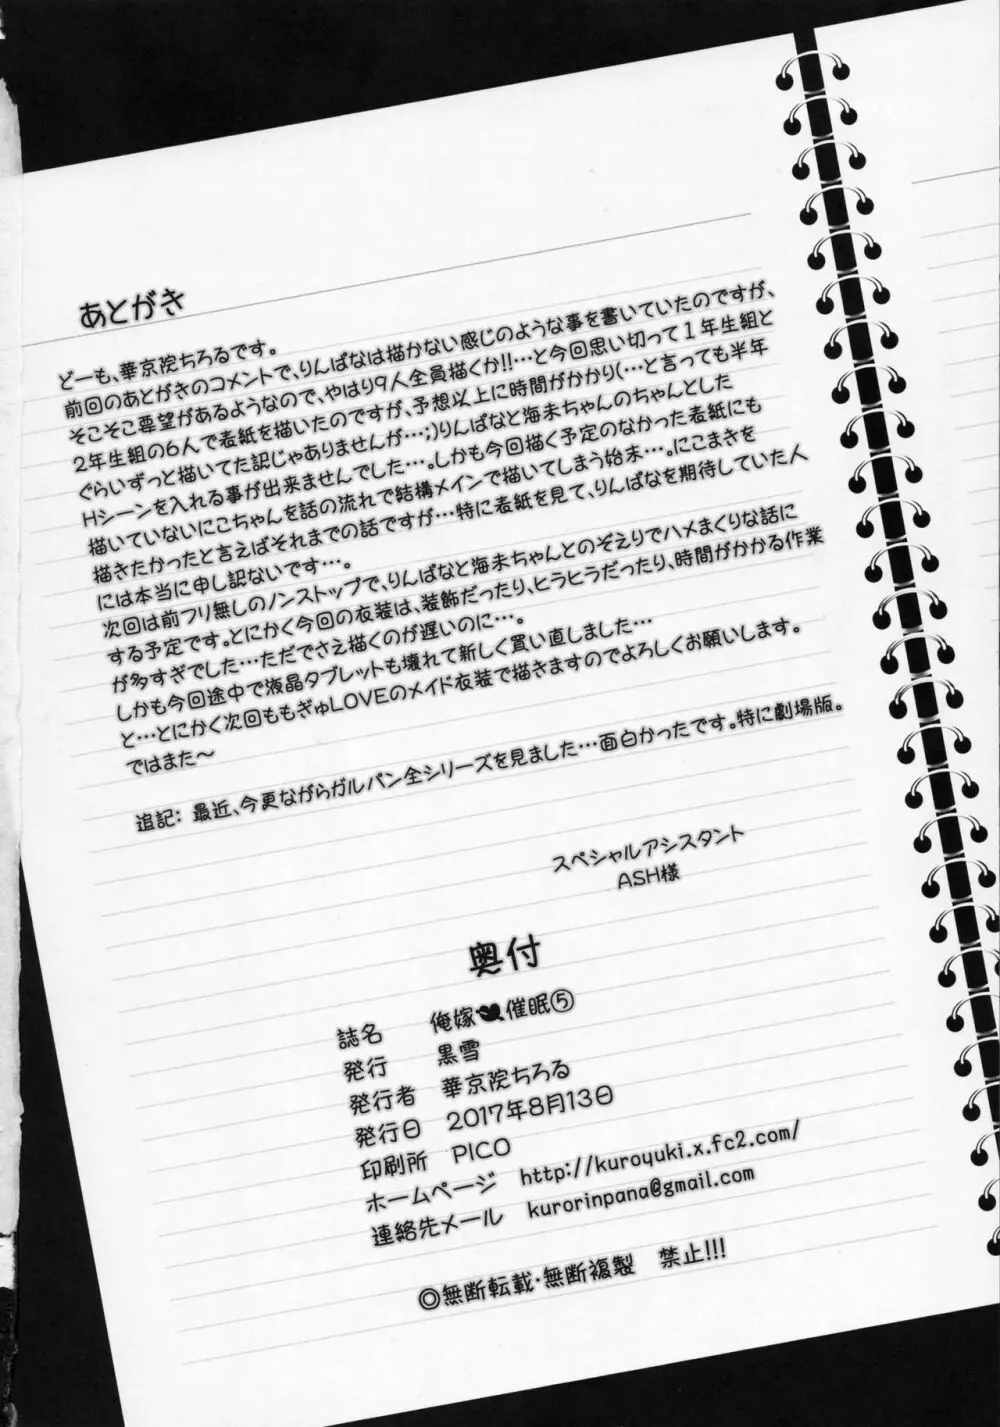 あとがき
どーも、華京院ちろるです。
前回のあとがきのコメントで、りんぱなは描かない感じのような事を書いていたのですが、
そこそこ要望があるようなので、やはり9人全員描くか!!…と今回思い切って1年生組と
2年生組の6人で表紙を描いたのですが、予想以上に時間がかかり(…と言っても半年
ぐらいずっと描いてた訳じゃありませんが…;)りんぱなと海未ちゃんのちゃんとした
Hシーンを入れる事が出来ませんでした…。しかも今回描く予定のなかった表紙にも
描いていないにこちゃんを話の流れで結構メインで描いてしまう始末…。にこまきを
描きたかったと言えばそれまでの話ですが…特に表紙を見て、りんぱなを期待していた人
には本当に申し訳ないです…。
次回は前フリ無しのノンストップで、りんぱなと海未ちゃんとのぞえりでハメまくりな話に
する予定です。とにかく今回の衣装は、装飾だったり、ヒラヒラだったり、時間がかかる作業
が多すぎでした…ただでさえ描くのが遅いのに…。
しかも今回途中で液晶タブレットも壊れて新しく買い直しました…
と…とにかく次回ももぎゅLOVEのメイド衣装で描きますのでよろしくお願いします。
ではまた～
追記: 最近、今更ながらガルパン全シリーズを見ました…面白かったです。特に劇場版。
スペシャルアシスタント
ASH様
奥付
誌名 俺嫁催眠⑤
発行 黒雪
発行者 華京院ちろる
発行日 2017年8月13日
印刷所 PICO
ホームページ http://kuroyuki.x.fc2.com/
連絡先メール kurorinpana@gmail.com
◎無断転載・無断複製 禁止!!!